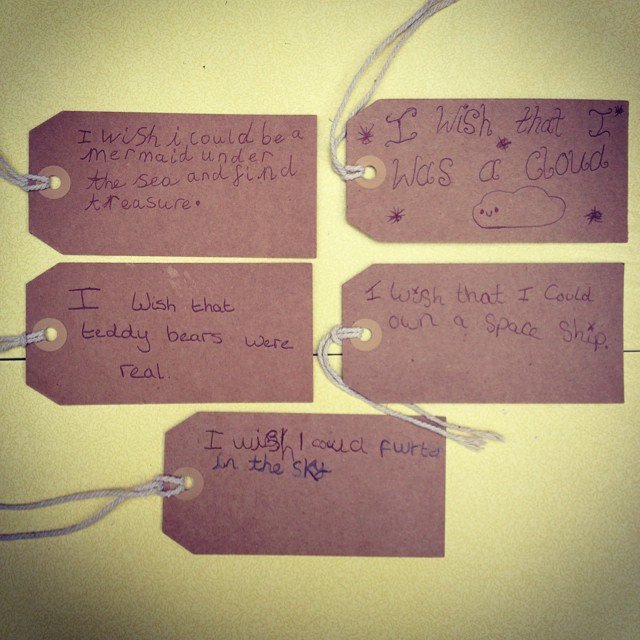 I wish i could be a
mermaid under
the sea and find
treasure.
I wish that I
was a cloud
I wish that
teddy bears were
real.
I wish that I could
own a space ship.
I wish I could
in the sky